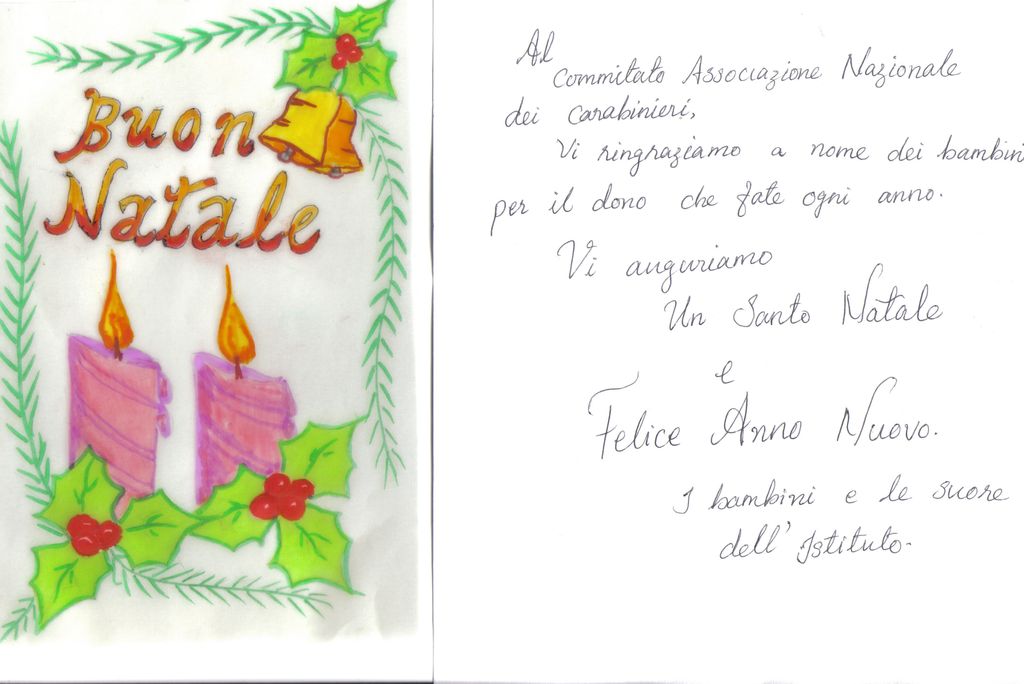 Buon
Natale
Al
Commitato Associazione Nazionale
dei Carabinieri,
Vi ringraziamo a nome dei bambini
per il dono che fate ogni anno.
Vi auguriamo
Un Santo Natale
e
Felice Anno Nuovo.
I bambini e le suore
dell' Istituto.